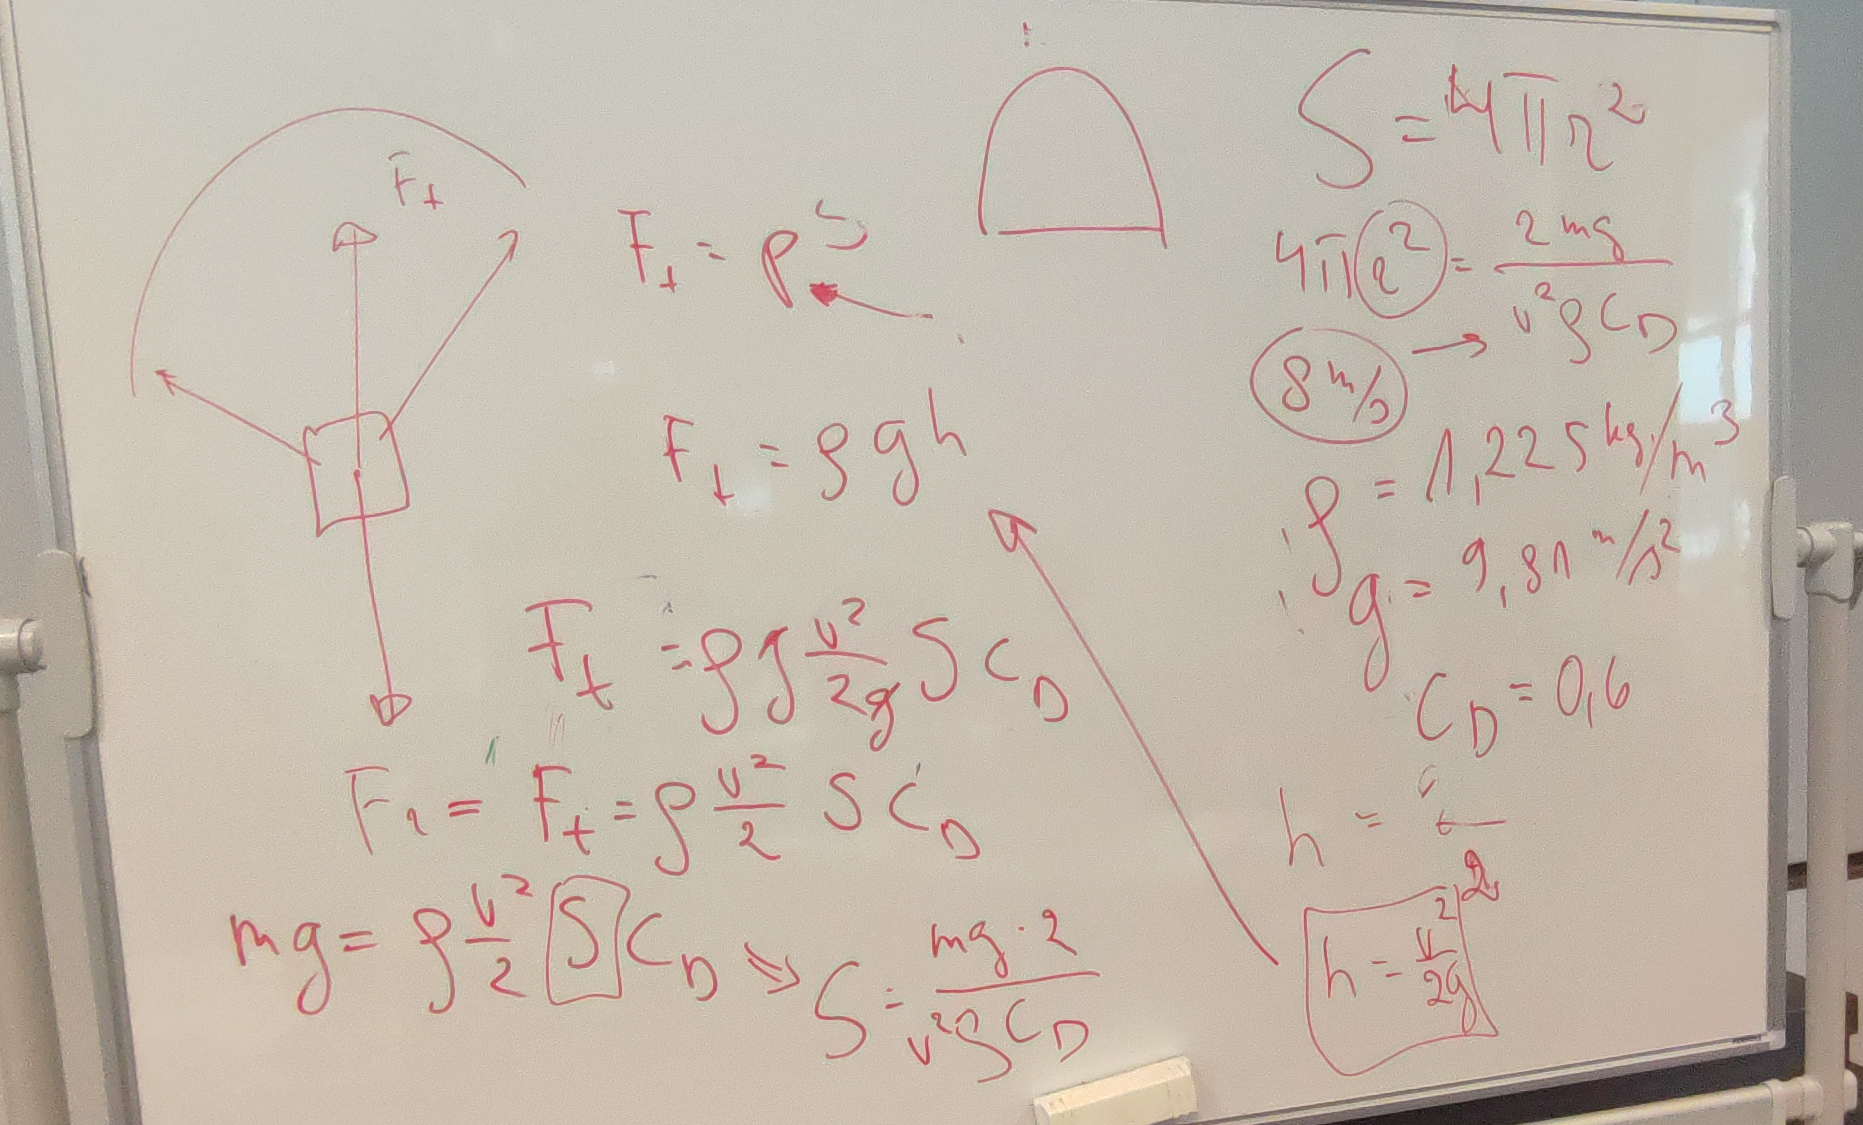 F_t
F_t = p S
F_t = ρgh
F_t = ρg v²/2g S C_D
F_1 = F_t = ρ v²/2 S C_D
mg = ρ v²/2 S C_D ⇒ S = mg · 2 / v²ρC_D
S = 4πr²
4πr² = 2mg / v²ρC_D
8 m/s →
ρ = 1,225 kg/m³
g = 9,81 m/s²
C_D = 0,6
h =
h = v²/2g
2